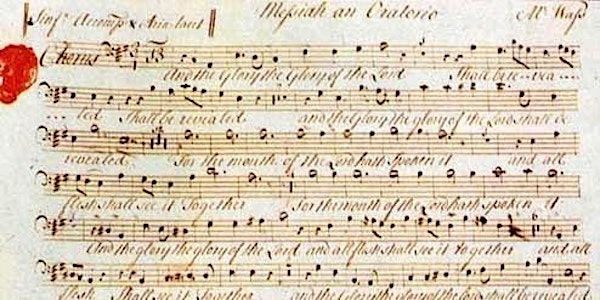 Sinf.ª Accomp.d & Aria tacet Messiah an Oratorio Mr Wass
Chorus And the Glory the Glory of the Lord Shall be re=vea
led Shall be revealed and the Glory the glory of the Lord shall be
revealed For the mouth of the Lord hath Spoken it and all
flesh shall see it Together For the mouth of the Lord hath spoken it
And the glory the glory of the Lord and all flesh shall see it together and all
flesh Shall See it Together and the Glory the glory of the Lord shall be revealed